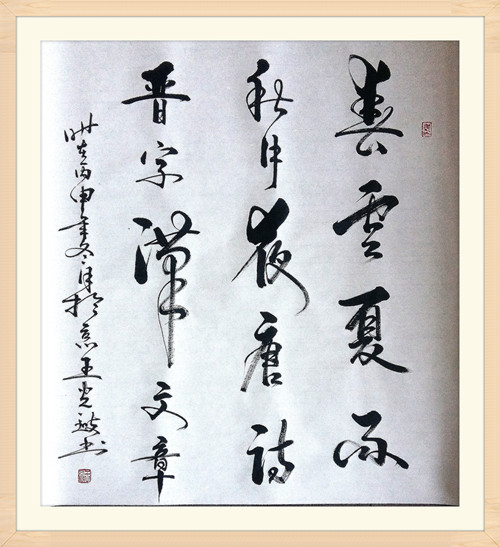 春雲夏雨
秋月夜唐詩
晋字漢文章
時在丙申年冬月於京王光敏书